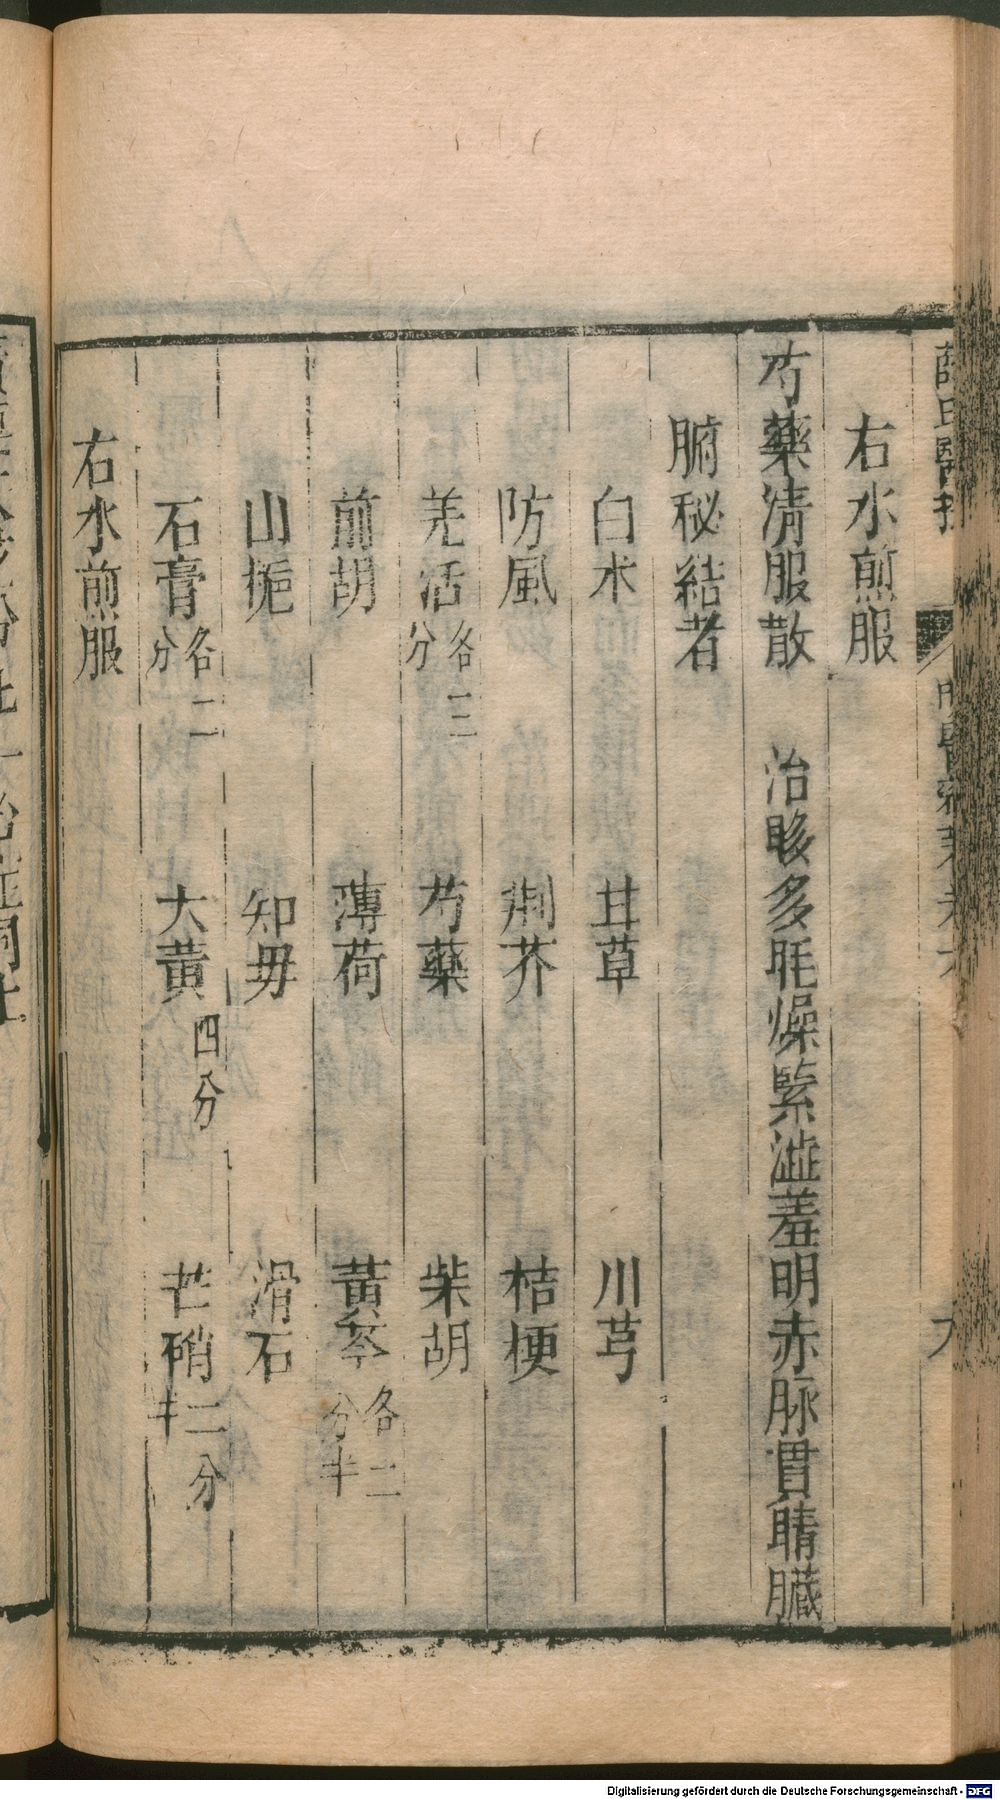 右水煎服
芍藥清服散 治眵多眊燥緊澁羞明赤脉貫睛臓
腑秘結者
白术 甘草 川芎
防風 荆芥 桔梗
羌活各三分 芍藥 柴胡
前胡 薄荷 黃芩各二分半
山梔 知毋 滑石
石膏各二分 大黃四分 芒硝二分半
右水煎服
Digitalisierung gefördert durch die Deutsche Forschungsgemeinschaft - DFG